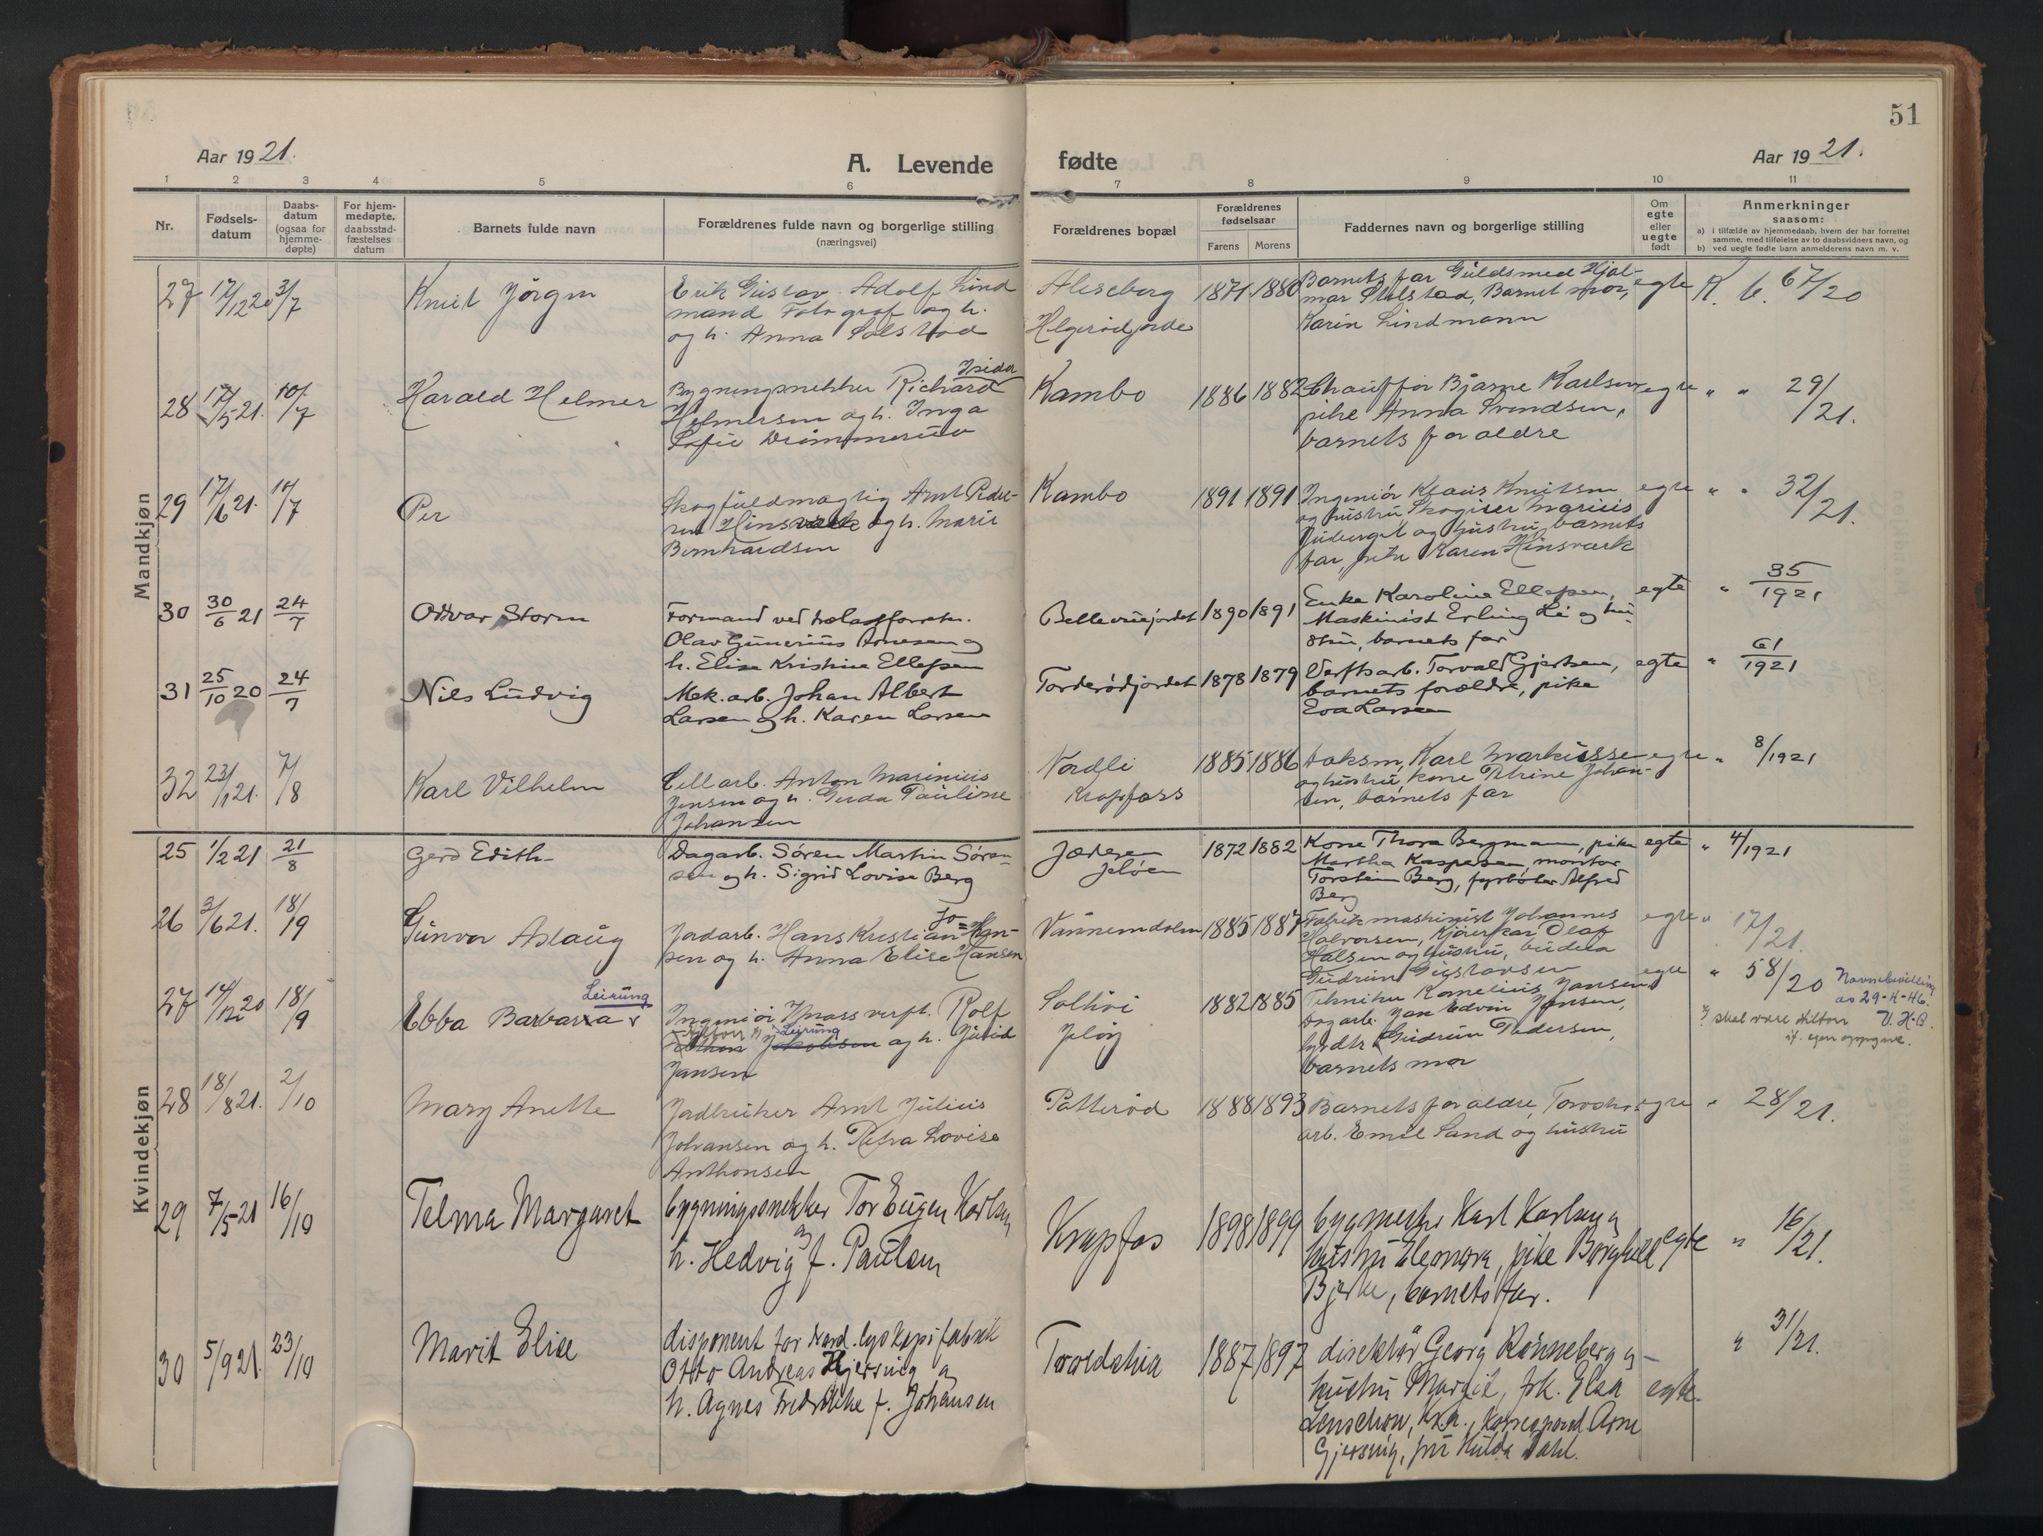 51
Aar 1921.
A. Levende
fødte
Aar 1921.
1 2 3 4 5 6 7 8 9 10 11
Nr.
Fødsels-
datum
Daabs-
datum
(ogsaa for
hjemme-
døpte)
For hjem-
medøpte,
daabsstad-
fæstelses
datum
Barnets fulde navn
Forældrenes fulde navn og borgerlige stilling
(næringsvei)
Forældrenes bopæl
Forældrenes
fødselsaar
Farens Morens
Faddernes navn og borgerlige stilling
Om
egte
eller
uegte
født
Anmerkninger
saasom:
a) i tilfælde av hjemmedaab, hvem der har forrettet
samme, med tilføielse av to daabsvidners navn, og
b) ved uegte fødte barn anmelderens navn m. v.
Mandkjøn
27 17/12 20 3/7 Knut Jörgen
Erik Gustav Adolf Lind
mand Fotograf og h.
og h. Anna Solstad
Helgerødjordet
1871 1880
Barnets far Guldsmed Hjal-
mar Solstad, Barnet mor,
Karin Lindmann
egte K. b. 67/20
28 17/5 21. 10/7 Harald Helmer
Bygningsnekker Richard Isidor
Helmersen og h. Inga
Sofie Drømmerud
Kambo
1886 1882
Chauffør Bjarne Karlsen
pike Anna Svendsen,
barnets forældre
egte " " 29/21.
29 17/6 21. 17/7 Per
Skogfuldmægtig Arnt Peder-
sen Hinsværk og h. Marie
Bernhardsen
Kambo
1891 1891
Ingeniør Klaus Knutsen
og hustru Skogeier Marius
og hustru, barnets
far, pike Karen Hinsværk
egte " " 32/21.
30 30/6 21 24/7 Oddvar Storm
Formand ved trælastforretn.
Olav Gunerius Arnesen og
h. Elise Kristine Ellefsen
Bellevuejordet
1890 1891
Enke Karoline Ellefsen,
Maskinist Erling Lie og hu-
stru, barnets far
egte " 35/1921
31 25/10 20 24/7 Nils Ludvig
Mek. arb. Johan Albert
Larsen og h. Karen Larsen
Torderødjordet
1878 1879
Verftsarb. Torvald Gjertsen,
barnets forældre, pike
Eva Larsen
egte " 61/1921
32 23/1 21. 7/8 Karl Vilhelm
Cell arb. Anton Marinius
Jensen og h. Gerda Pauline
Johansen
Nordli
Krapfoss
1885 1886
Karl Markusse
og hustru, kone Petrine Johan-
sen, barnets far
egte " 8/1921
Kvindekjøn
25 1/2 21 21/8 Gerd Edith
Dagarb. Søren Martin Søren-
sen og h. Sigrid Lovise Berg
Jæderen
Jeløen
1872 1882
Kone Thora Bergmann, pike
Martha Kaspersen, montør
Torstein Berg, fyrbøter Alfred
Berg
egte " 4/1921
26 3/6 21. 18/19 Gunvor Aslaug
Jordarb. Hans Kristian Jo= Han-
sen og h. Anna Elise Hansen
Vannemdalen
1885 1887
Fabrikmaskinist Johannes
Halvorsen, Kjører Olaf
Halsen og hustru, budeia
Gudrun Gustavsen
egte " 17/21.
27 14/12 20 18/9 Ebba Barbara Leirung
Ingeniør Rolf
Leirung Jakobsen og h. Jutid
Jansen
Solhøi
Jeløy
1882 1885
Tekniker Kornelius Jansen
Dagarb. Jan Edvin Jansen,
Gudrun Pedersen,
barnets mor
egte " 58/20
Navnebevilling
av 29-4-46.
V. H-B.
skal være Hilton
if. egen oppgave.
28 18/8 21. 2/10 Mary Anette
Jordbruker Arnt Julius
Johansen og h. Petra Lovise
Anthonsen
Patterød
1888 1893
Barnets forældre,
arb. Emil Sand og hustru
egte " 28/21.
29 7/5 21 16/10 Telma Margaret
bygningssnekker Tor Eugen Karlsen
og
h. Hedvig f. Paulsen
Krapfos
1898 1899
bygmester Karl Karlsen og
hustru Elenora, pike Borghild
Bjerke, barnets far.
egte " 16/21.
30 5/9 21. 23/10 Marit Elise
disponent for Nord. lyskopifabrik
Otto Andreas Gjersvig og
h. Agnes Fredrikke f. Johansen
Toroldslia
1887 1897
direktør Georg Rønneberg og
hustru Margit, frk. Elsa
Lenschow, Kra., korrespond. Arne
Gjersvig, fru Hulda Dahl.
egte. " 31/21.